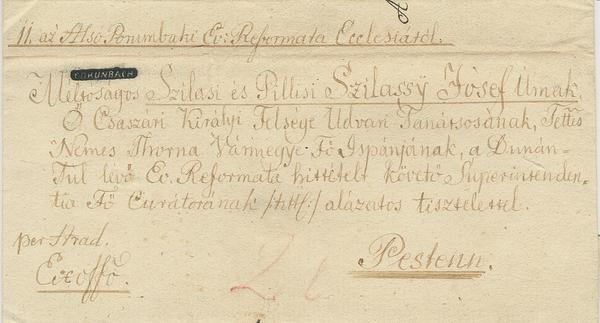 11. az Alsó Porumbaki Ev: Reformata Ecclesiától.
PORUNBACH
Méltóságos Szilasi és Pillisi Szilassÿ Jósef Úrnak,
Ő Császári Királyi Felsége Udvari Tanátsosának, Tettes
Nemes Thorna Vármegye Fő Ispánjának, a Dunán-
Túl lévő Ev. Reformata hittételt követő Superintenden-
tia Fő Curátorának /:titt:/ alázatos tisztelettel.
per Strad.
Exoffő.
Pestenn.